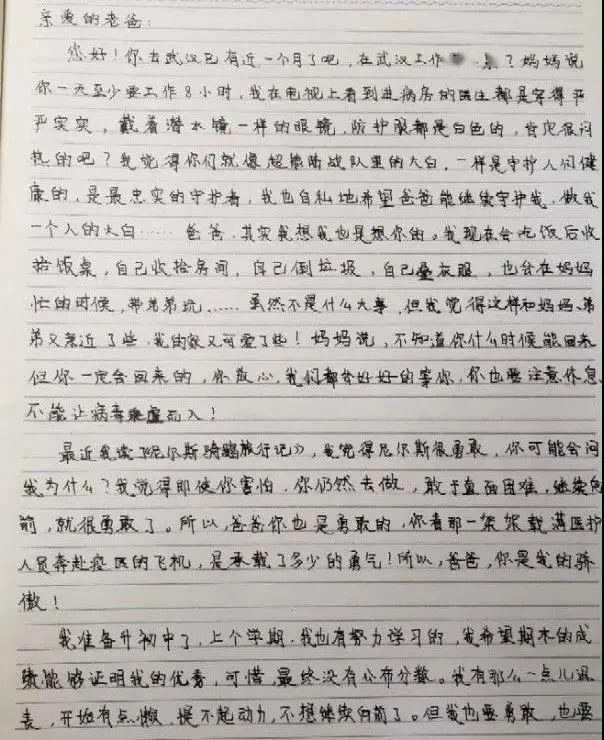 亲爱的老爸：
您好！你去武汉已有近一个月了吧，在武汉工作 ？妈妈说
你一天至少要工作8小时，我在电视上看到进病房的医生都是穿得严
严实实，戴着潜水镜一样的眼镜，防护服都是白色的，肯定很闷
热的吧？我觉得你们就像超能陆战队里的大白，一样是守护人们健
康的，是最忠实的守护者，我也自私地希望爸爸能继续守护我，做我
一个人的大白……爸爸，其实我想我也是想你的。我现在会吃饭后收
拾饭桌，自己收拾房间，自己倒垃圾，自己叠衣服，也会在妈妈
忙的时候，带弟弟玩……虽然不是什么大事，但我觉得这样和妈妈、弟
弟又亲近了些，我的家又可爱了些！妈妈说，不知道你什么时候能回来
但你一定会回来的，你放心，我们都会好好的等你，你也要注意休息
不能让病毒乘虚而入！
最近我读《尼尔斯骑鹅旅行记》，我觉得尼尔斯很勇敢，你可能会问
我为什么？我觉得即使你害怕，你仍然去做，敢于直面困难，继续向
前，就很勇敢了。所以，爸爸你也是勇敢的，你看那一架架载满医护
人员奔赴疫区的飞机，是承载了多少的勇气！所以，爸爸，你是我的骄
傲！
我准备升初中了，上个学期，我也有努力学习的，我希望期末的成
绩能够证明我的优秀，可惜，最终没有公布分数。我有那么一点儿沮
丧，开始有点懒，提不起动力，不想继续向前了。但我也要勇敢，也要